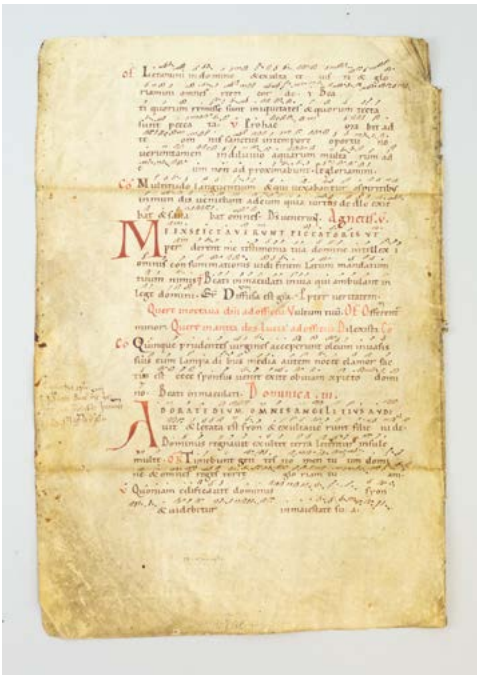 Of Letamini in domino & exulta te iusti & glo
riamini omnes recti cor de. v Bea
ti quorum remisse sunt iniquitates & quorum tecta
sunt pecca ta. v Pro hac ora bit ad
te om nis sanctus in tempore oportu no
veruntamen in diluvio aquarum multa rum ad
e um non ad proximabunt. & gloriamini.
Co Multitudo languentium & qui vexabantur a spiritibus
inmun dis veniebant ad eum quia virtus de illo exie
bat & sana bat omnes. Agnetis. V.
ME EXSPECTAVERUNT PECCATORES UT
per derent me testimonia tua domine intellexi
omnis consummationis vidi finem latum mandatum
tuum nimis. Beati inmaculati in via qui ambulant in
lege domini. Gr Diffusa est gra. Propter veritatem.
Quere in octava dni ad officiu Vultum tuu. Of Offerent
minor. Quere in antea des Lucia ad officiu Dilexisti. Co
Co Quinque prudentes virgines acceperunt oleum in vasis
suis cum lampa di bus media autem nocte clamor fac
tus est ecce sponsus venit exite obviam xpisto domi
no. Beati inmaculati. Dominica. iii.
ADORATE DEUM OMNES ANGELI EIUS AUDI
vit & letata est syon & exultave runt filie iude
Dominus regnavit exultet terra letentur insule
multe. GR Timebunt gen tes no men tu um domi
ne & omnes reges terre glo riam tu am.
v Quoniam edificavit dominus syon
& videbitur in maiestate su a.